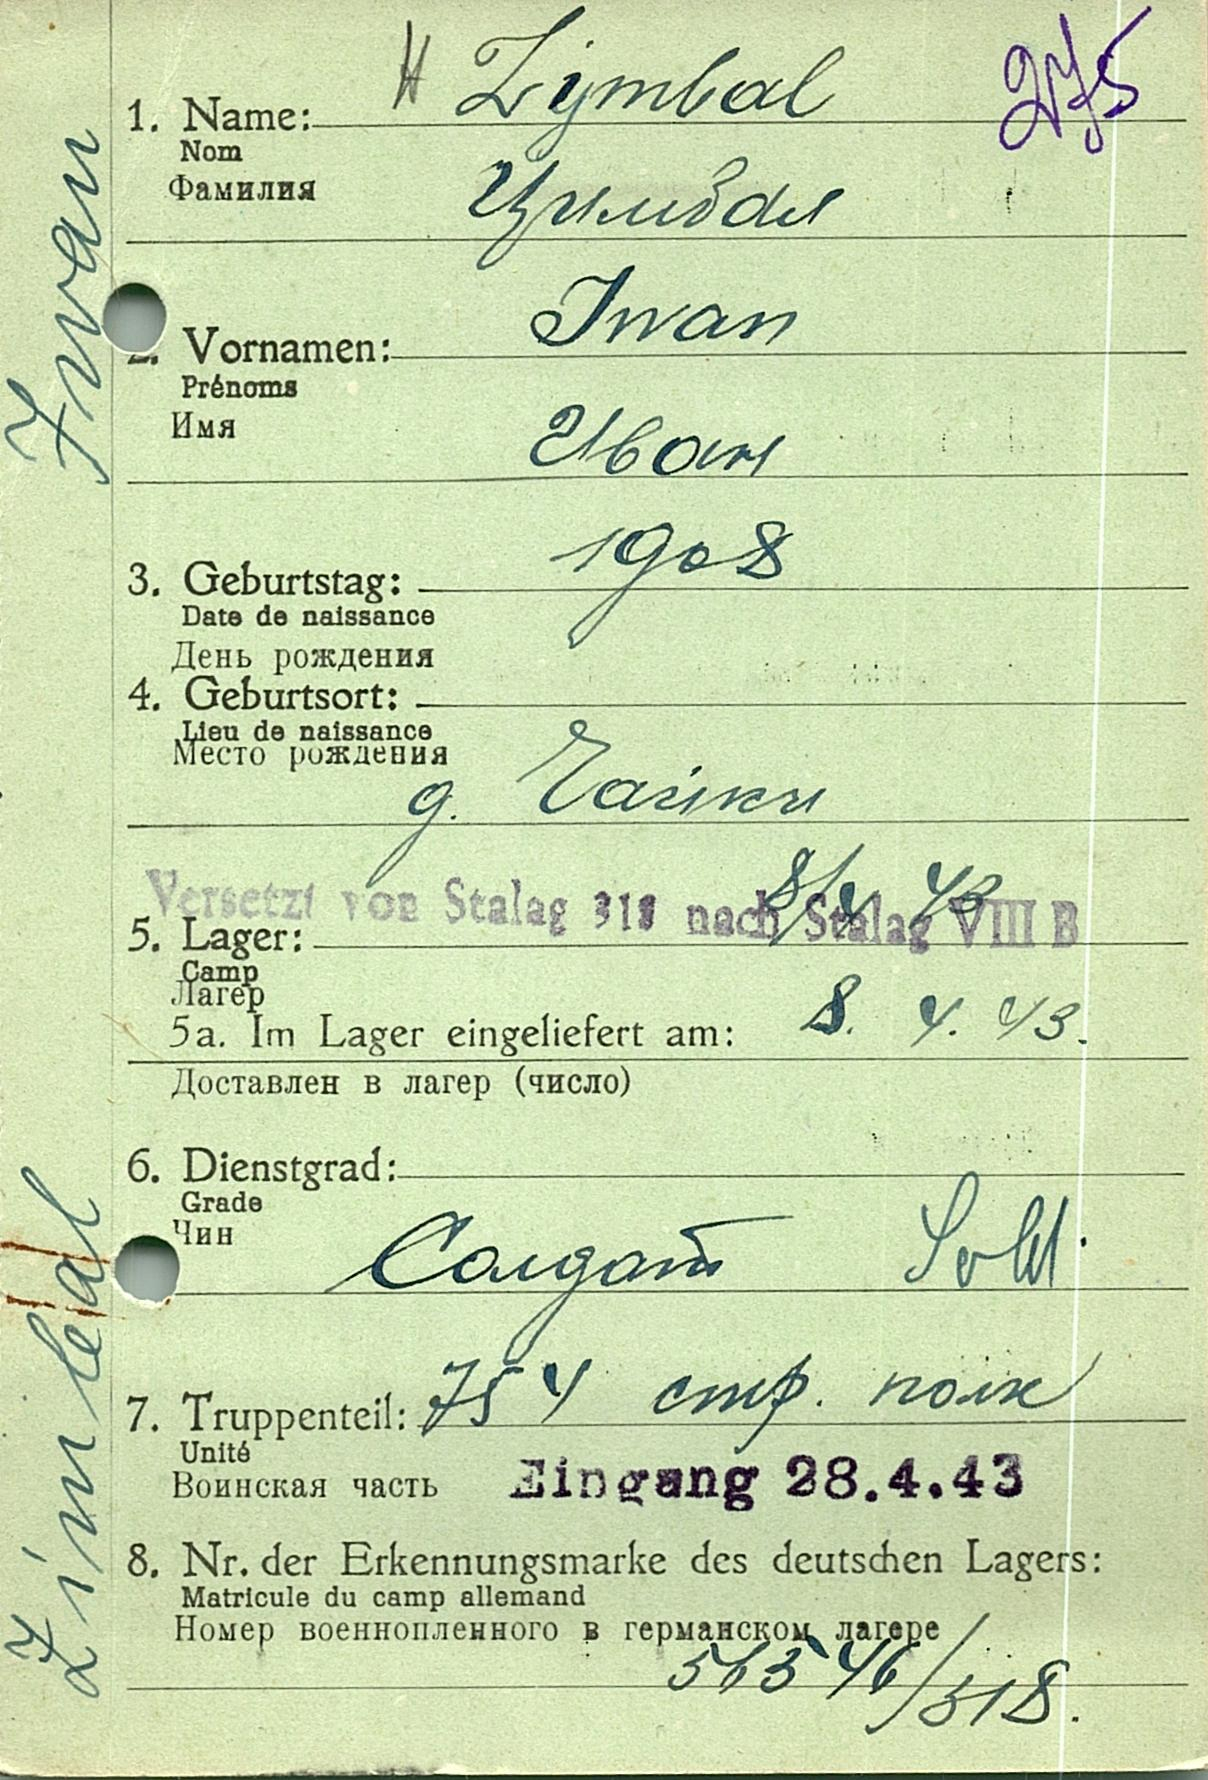 H Zymbal 275
1. Name:
Nom
Фамилия Цимбал
Iwan
2. Vornamen:
Prénoms
Имя Иван
1908
3. Geburtstag:
Date de naissance
День рождения
4. Geburtsort:
Lieu de naissance
Место рождения
д. Чайки
8/4 43
Versetzt von Stalag 318 nach Stalag VIII B
5. Lager:
Camp
Лагерь
5a. Im Lager eingeliefert am: 8. 4. 43.
Доставлен в лагер (число)
6. Dienstgrad:
Grade
Чин
Солдат Sold.
7. Truppenteil: 754 стр. полк
Unité
Воинская часть Eingang 28.4.43
8. Nr. der Erkennungsmarke des deutschen Lagers:
Matricule du camp allemand
Номер военнопленного в германском лагере
/318.
Zimbal Iwan